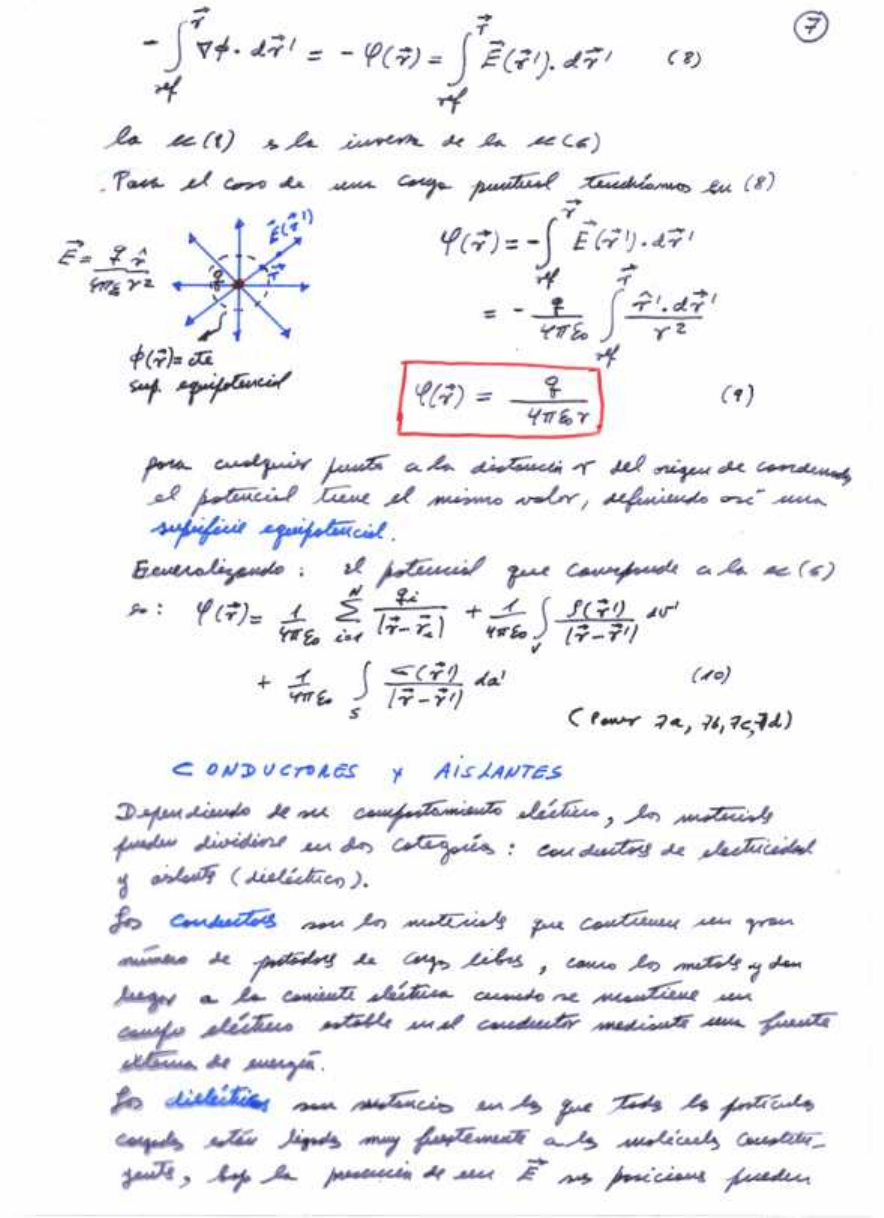 7
- ∫_ref^{r⃗} ∇φ · dr⃗' = - φ(r⃗) = ∫_ref^{r⃗} E⃗(r⃗') · dr⃗'    (8)
la ec (8) es la inversa de la ec (6)
. Para el caso de una carga puntual tendríamos en (8)
E⃗ = q r̂ / 4πε₀ r²
E⃗(r⃗')
r⃗
q
φ(r⃗) = cte
sup. equipotencial
φ(r⃗) = - ∫_ref^{r⃗} E⃗(r⃗') · dr⃗'
= - q / 4πε₀ ∫_ref^{r⃗} r̂' · dr⃗' / r²
φ(r⃗) = q / 4πε₀ r    (9)
para cualquier punto a la distancia r del origen de coordenadas
el potencial tiene el mismo valor, definiendo así una
superficie equipotencial.
Generalizando : el potencial que corresponde a la ec (6)
es : φ(r⃗) = 1/4πε₀ ∑_{i=1}^{N} q_i / |r⃗ - r⃗_i| + 1/4πε₀ ∫_v ρ(r⃗') / |r⃗ - r⃗'| dv'
+ 1/4πε₀ ∫_S σ(r⃗') / |r⃗ - r⃗'| da'    (10)
( Poner 7a, 7b, 7c, 7d)
CONDUCTORES Y AISLANTES
Dependiendo de su comportamiento eléctrico, los materiales
pueden dividirse en dos categorías : conductores de electricidad
y aislantes (dieléctricos).
Los conductores son los materiales que contienen un gran
número de portadores de carga libres, como los metales y dan
lugar a la corriente eléctrica cuando se mantiene un
campo eléctrico estable en el conductor mediante una fuente
externa de energía.
Los dieléctricos son sustancias en las que todas las partículas
cargadas están ligadas muy fuertemente a las moléculas constitu-
yentes, bajo la presencia de un E⃗ sus posiciones pueden